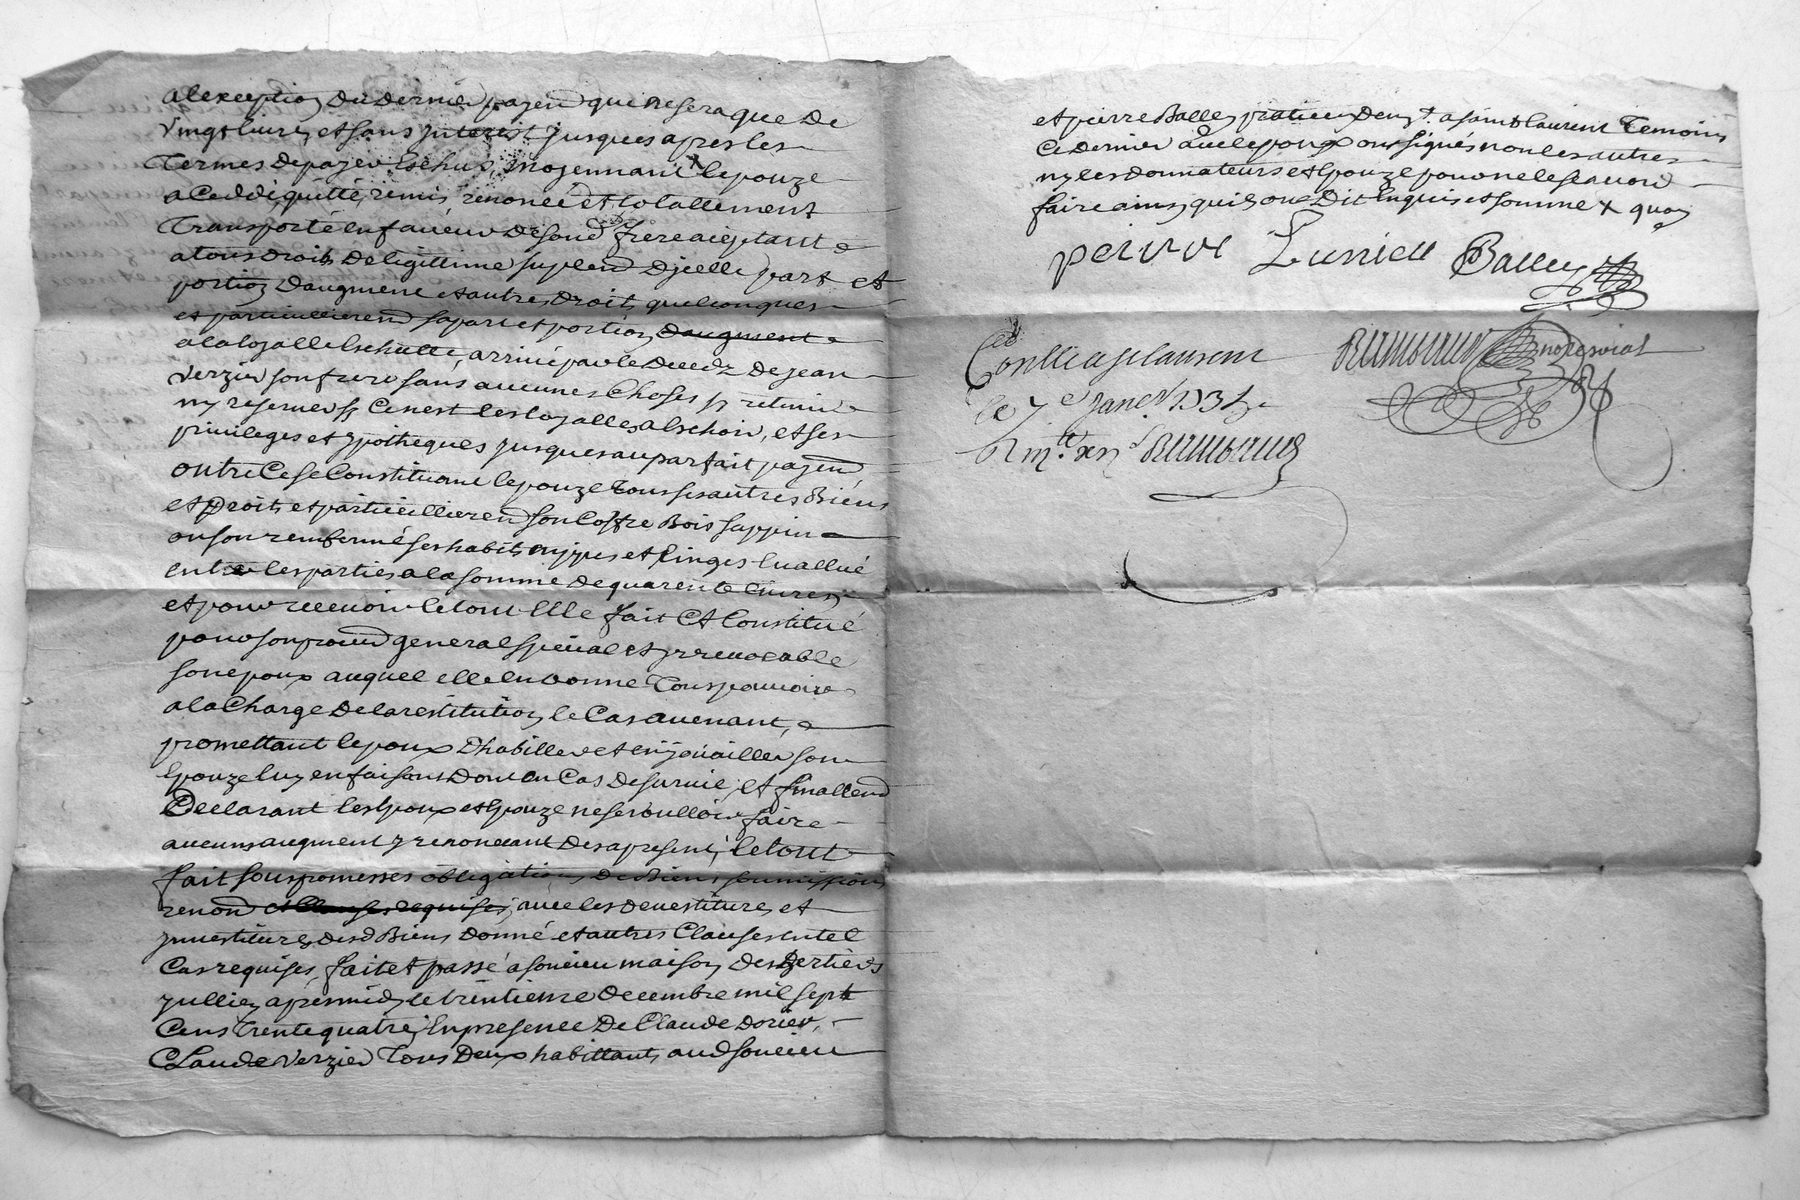 alexception du dernier payem qui ne sera que de
vingt livres et sans interest jusques apres les
termes de payer Escheus, moyennant lepouze
a ceddé, quitté, remis, renoncé et totallement
transporté en faveur de son d frere acceptant
a tous droits de legittime suplem d'jcelle part et
portion daugment et autres droits quelconques
et particullierem sa part et portion daugment
a la loyalle Escheutte, arrivé par le deceds de Jean
Verzier son frere sans aucunes choses sy retenir
ny reserver sy Ce nest les loyalles Escheoir, et ses
privileges et ypotheques jusques au parfait payem
outre Ce se Constituant lepouze tous ses autres Biens
et Droits et particullierem son Coffre Bois sappin
ou son renfermé ses habits nippes et linges Evallué
entre les parties a la somme de quarente livres,
et pour recevoir le tout Elle fait et Constitué
pour son procur general special et jrrevocable
son epoux auquel elle en donne tous pouvoirs
a la Charge de la restitution le Cas avenant,
promettant lepoux d'habiller et enjouailler son
Epouze luy en faisant Don en Cas de survie, et finallem
Declarant les Epoux et Epouze ne se voulloir faire
aucuns augment y renoncant des apresent, le tout
fait sous promesses obligations de Biens soumissions
renon et Clauses requises, avec les devestitures et
jnvestitures desd Biens donné et autres Clauses en tel
Cas requises, fait et passé a Soucieu maison des Verziers
Jullien apres midy le trentieme decembre mil sept
Cens trente quatre, En presence de Claude Dorier,
Claude Verzier tous deux habittants aud Soucieu
et pierre Balley praticien dem.t a saint Laurent Temoins
Ce dernier avec lepoux ont signés non les autres
ny les donnateurs et Epouze pour ne le scavoir
faire ainsy quils ont Dit Enquis et sommé
peirre Balley
Conllé a St Laurent
le 7e Janer